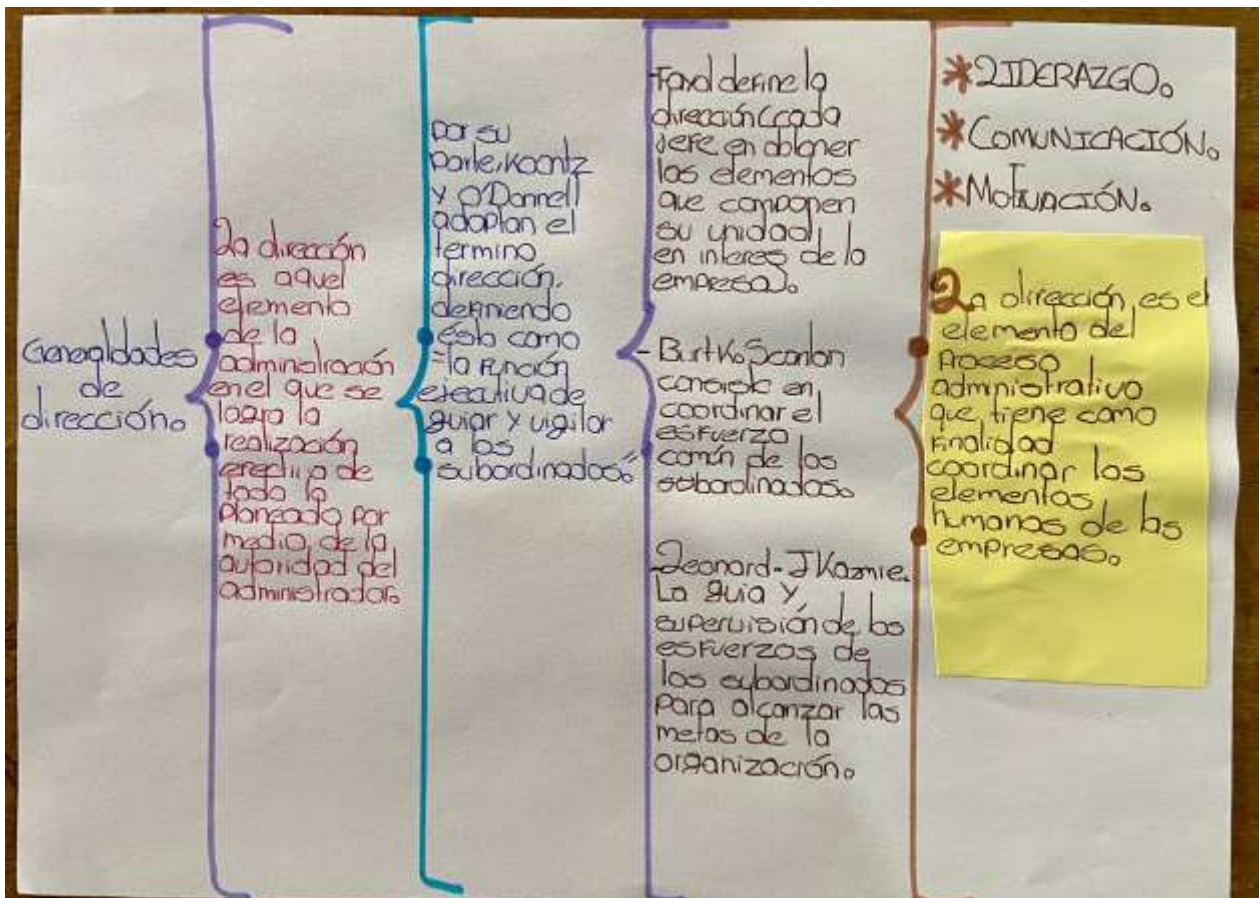 Generaldades
de
dirección.
La dirección
es aquel
elemento
de la
administración
en el que se
logra la
realización
efectiva de
todo lo
planeado por
medio de la
autoridad del
administrador.
por su
parte, Koontz
y O'Donnell
adoptan el
termino
dirección,
definiendo
ésta como
"la función
ejecutiva de
guiar y vigilar
a los
subordinados"
-Fayol define la
dirección (cada
jefe en obtener
los elementos
que componen
su unidad,
en interes de la
empresa).
- Burt K. Scanlan
consiste en
coordinar el
esfuerzo
común de los
subordinados.
-Leonard-J Kazmie.
La guia y
supervisión de los
esfuerzos de
los subordinados
para alcanzar las
metas de la
organización.
*LIDERAZGO.
*COMUNICACIÓN.
*MOTIVACIÓN.
La dirección, es el
elemento del
proceso
administrativo
que tiene como
finalidad
coordinar los
elementos
humanos de las
empresas.